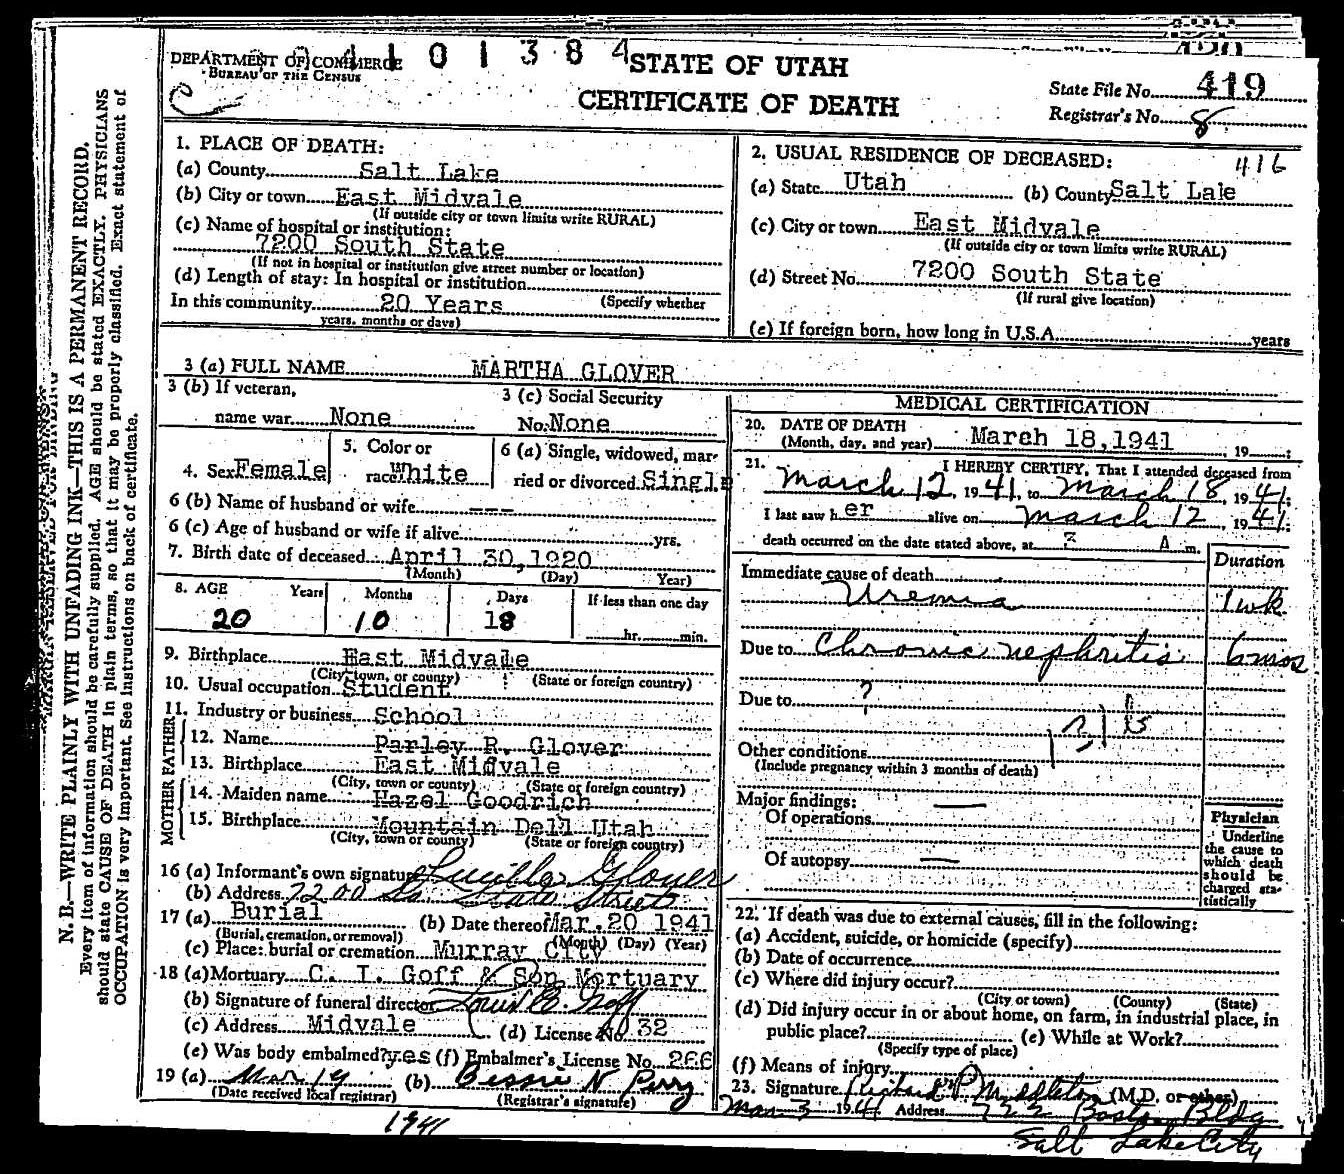 DEPARTMENT OF COMMERCE
BUREAU OF THE CENSUS
4 1 0 1 3 8 4
STATE OF UTAH
CERTIFICATE OF DEATH
State File No. 419
Registrar's No. 8
1. PLACE OF DEATH:
(a) County Salt Lake
(b) City or town East Midvale
(If outside city or town limits write RURAL)
(c) Name of hospital or institution:
7200 South State
(If not in hospital or institution give street number or location)
(d) Length of stay: In hospital or institution
In this community 20 Years (Specify whether
years, months or days)
2. USUAL RESIDENCE OF DECEASED: 416
(a) State Utah (b) County Salt Lake
(c) City or town East Midvale
(If outside city or town limits write RURAL)
(d) Street No. 7200 South State
(If rural give location)
(e) If foreign born, how long in U.S.A. years
3 (a) FULL NAME MARTHA GLOVER
3 (b) If veteran,
name war None
3 (c) Social Security
No. None
4. Sex Female
5. Color or
race White
6 (a) Single, widowed, mar-
ried or divorced Single
6 (b) Name of husband or wife ---
6 (c) Age of husband or wife if alive yrs.
7. Birth date of deceased April 30, 1920
(Month) (Day) Year)
8. AGE Years Months Days If less than one day
20 10 18 hr. min.
9. Birthplace East Midvale
(City, town, or county) (State or foreign country)
10. Usual occupation Student
11. Industry or business School
FATHER
12. Name Parley R. Glover
13. Birthplace East Midvale
(City, town or county) (State or foreign country)
MOTHER
14. Maiden name Hazel Goodrich
15. Birthplace Mountain Dell Utah
(City, town or county) (State or foreign country)
16 (a) Informant's own signature Lucille Glover
(b) Address 7200 So. State Street
17 (a) Burial (b) Date thereof Mar. 20 1941
(Burial, cremation, or removal) (Month) (Day) (Year)
(c) Place: burial or cremation Murray City
18 (a) Mortuary C. I. Goff & Son Mortuary
(b) Signature of funeral director Louis B. Goff
(c) Address Midvale (d) License No. 32
(e) Was body embalmed? yes (f) Embalmer's License No. 266
19 (a) Mar 19 (b) Bessie N Perry
(Date received local registrar) (Registrar's signature)
1941
MEDICAL CERTIFICATION
20. DATE OF DEATH
(Month, day, and year) March 18, 1941, 19
21. I HEREBY CERTIFY, That I attended deceased from
March 12, 1941, to March 18, 1941;
I last saw her alive on March 12, 1941;
death occurred on the date stated above, at A m.
Duration
Immediate cause of death
Uremia 1 wk
Due to Chronic nephritis 6 mos
Due to ?
131 b
Other conditions
(Include pregnancy within 3 months of death)
Major findings: —
Of operations
Of autopsy —
Physician
Underline
the cause to
which death
should be
charged sta-
tistically
22. If death was due to external causes, fill in the following:
(a) Accident, suicide, or homicide (specify)
(b) Date of occurrence
(c) Where did injury occur?
(City or town) (County) (State)
(d) Did injury occur in or about home, on farm, in industrial place, in
public place? (e) While at Work?
(Specify type of place)
(f) Means of injury
23. Signature Richard P. Middleton (M.D. or other)
Mar 3 1941 Address 722 Boston Bldg
Salt Lake City
N. B.—WRITE PLAINLY WITH UNFADING INK—THIS IS A PERMANENT RECORD.
Every item of information should be carefully supplied. AGE should be stated EXACTLY. PHYSICIANS
should state CAUSE OF DEATH in plain terms, so that it may be properly classified. Exact statement of
OCCUPATION is very important. See instructions on back of certificate.